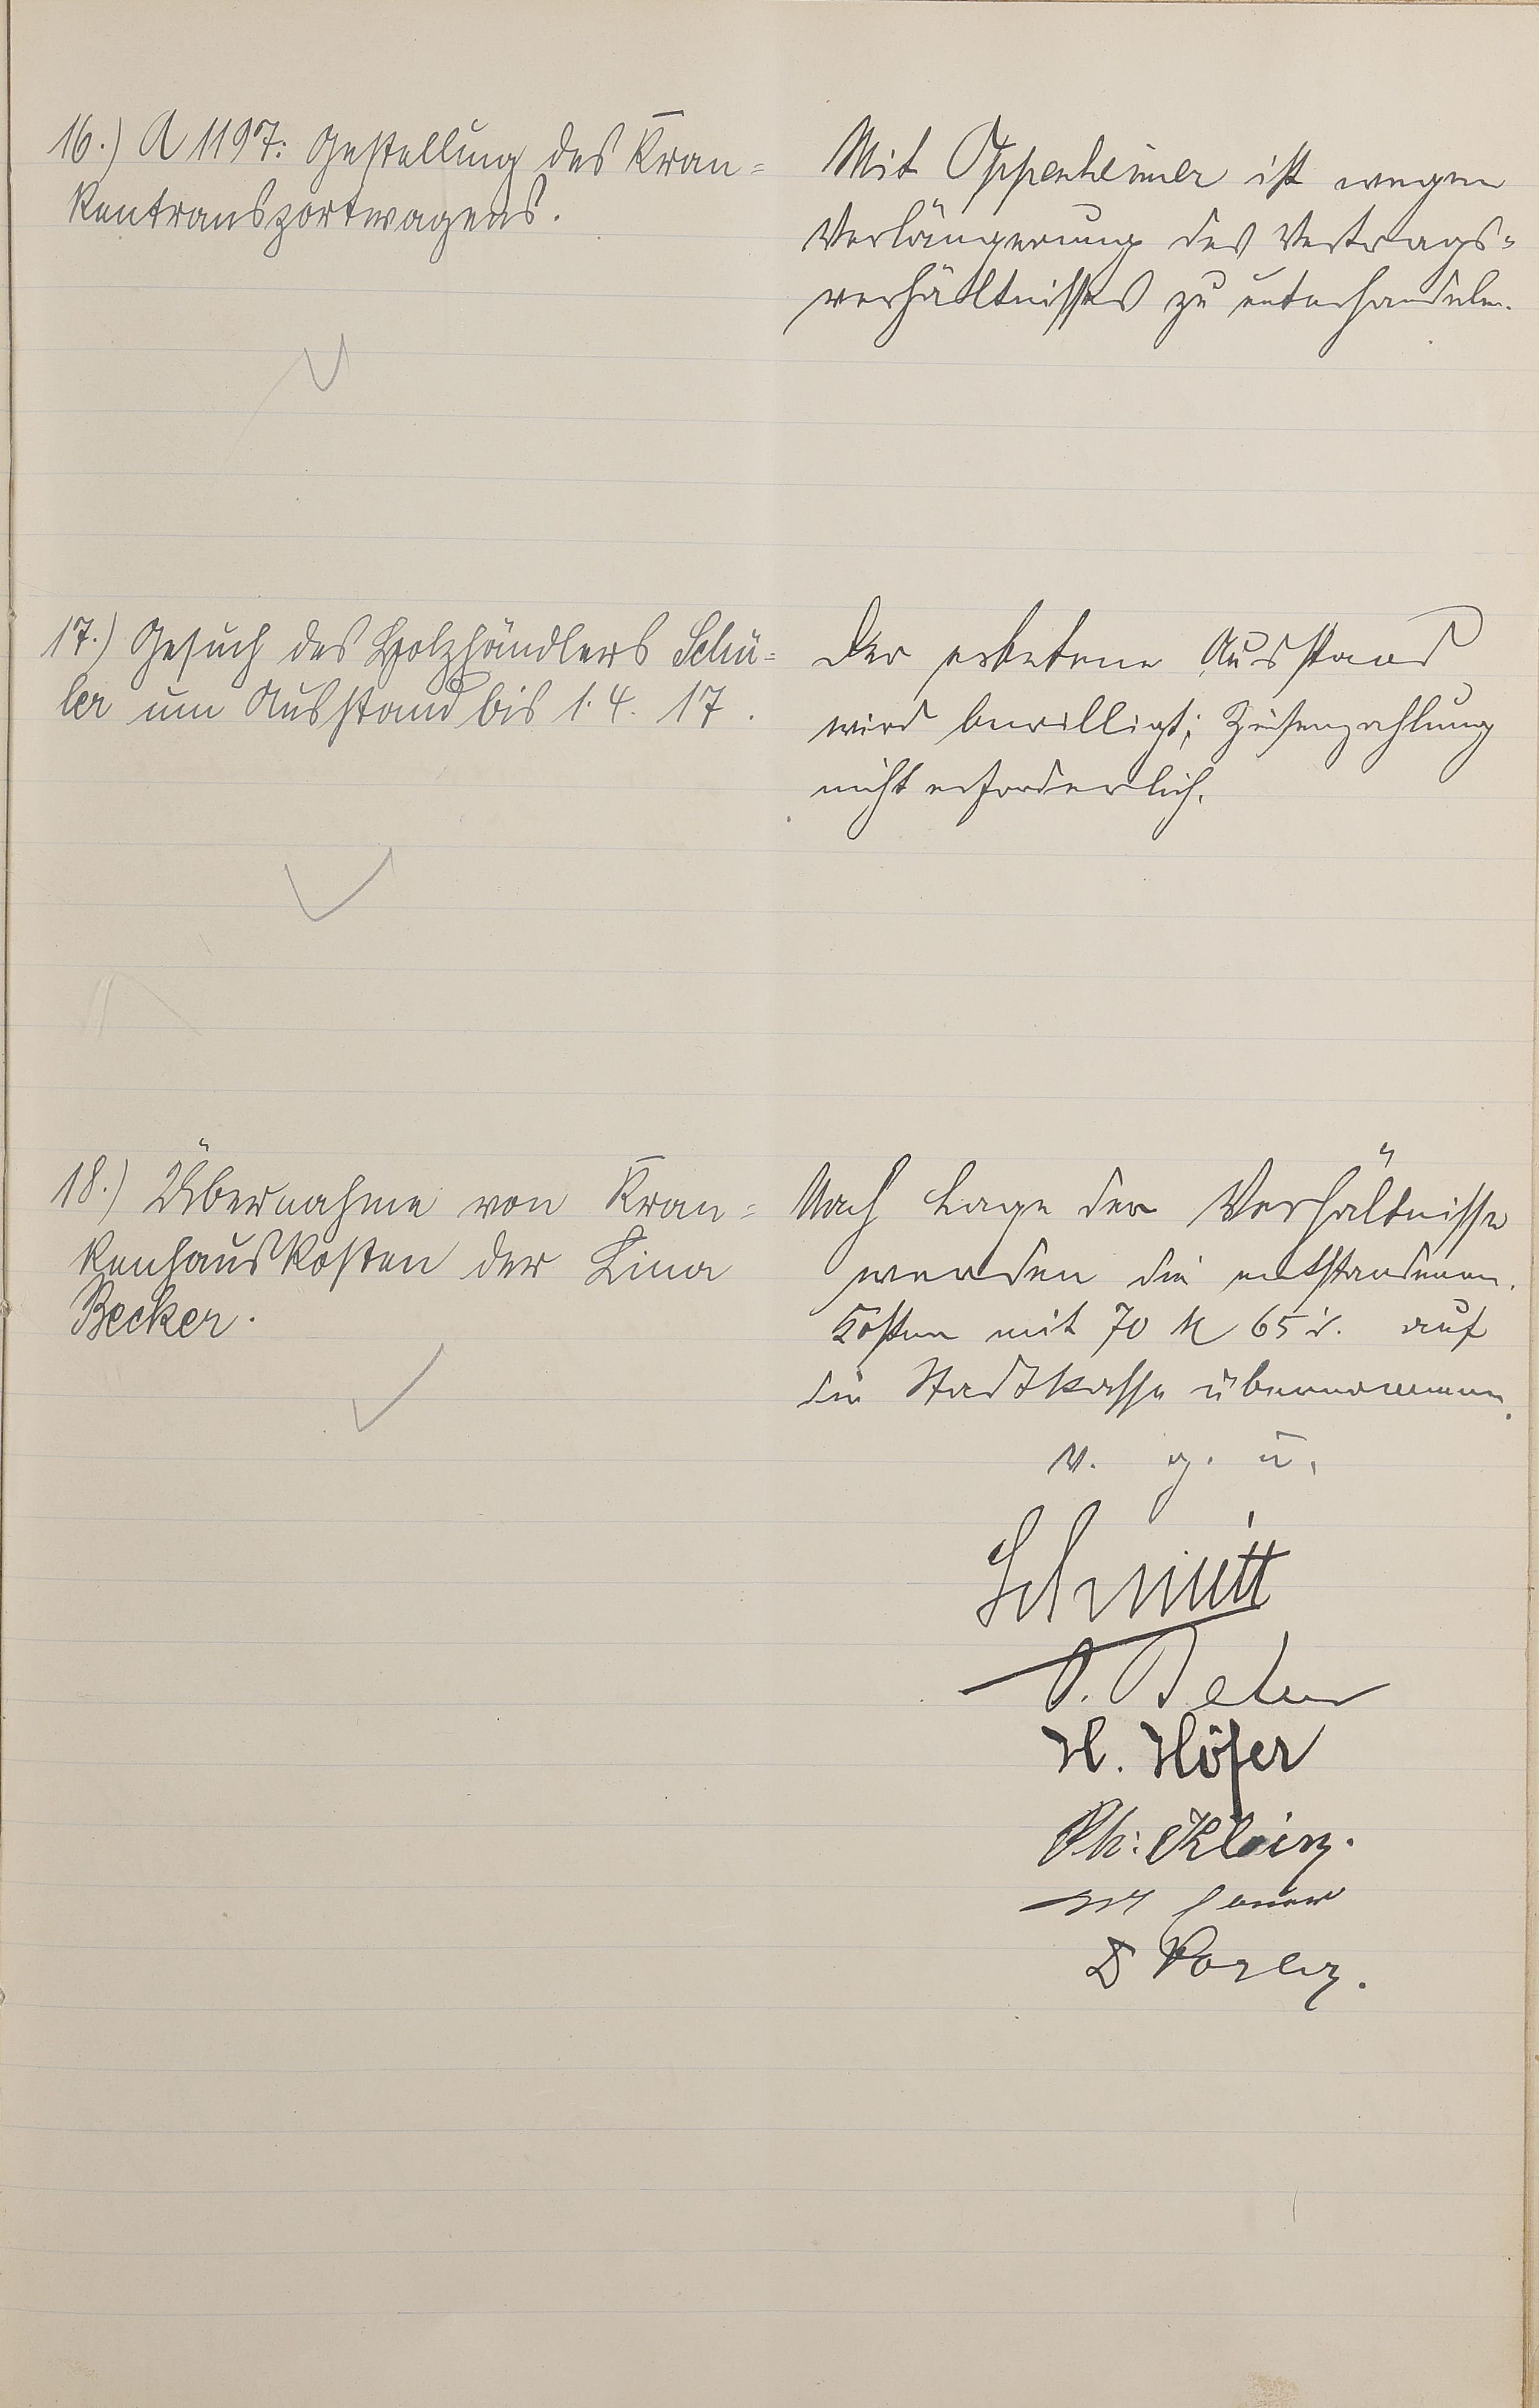 16.) A 1197: Gestellung des Kran=
kentransportwagens.
Mit Oppenheimer ist wegen
Verlängerung des Vertrags=
verhältnisses zu unterhandeln.
17.) Gesuch des Holzhändlers Schü=
ler um Ausstand bis 1.4. 17.
Der erbetene Ausstand
wird bewilligt; Zinsenzahlung
nicht erforderlich.
18.) Übernahme von Kran=
kenhauskosten der Lina
Becker.
Nach Lage der Verhältnisse
werden die entstandenen
Kosten mit 70 M 65 d. auf
die Stadtkasse übernommen.
v. g. u.
Schmitt
H. Höfer
Ph. Klein.